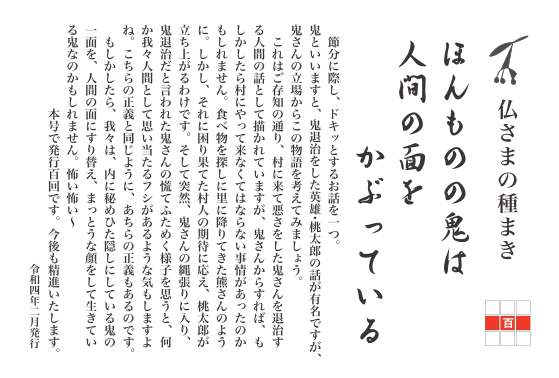 仏さまの種まき
百
ほんものの鬼は
人間の面を
かぶっている
節分に際し、ドキッとするお話を一つ。
鬼といいますと、鬼退治をした英雄・桃太郎の話が有名ですが、
鬼さんの立場からこの物語を考えてみましょう。
これはご存知の通り、村に来て悪さをした鬼さんを退治す
る人間の話として描かれていますが、鬼さんからすれば、も
しかしたら村にやって来なくてはならない事情があったのか
もしれません。食べ物を探しに里に降りてきた熊さんのよう
に。しかし、それに困り果てた村人の期待に応え、桃太郎が
立ち上がるわけです。そして突然、鬼さんの縄張りに入り、
鬼退治だと言われた鬼さんの慌てふためく様子を思うと、何
か我々人間として思い当たるフシがあるような気もしますよ
ね。こちらの正義と同じように、あちらの正義もあるのです。
もしかしたら、我々は、内に秘めひた隠しにしている鬼の
一面を、人間の面にすり替え、まっとうな顔をして生きてい
る鬼なのかもしれません。怖い怖い〜
本号で発行百回です。今後も精進いたします。
令和四年二月発行